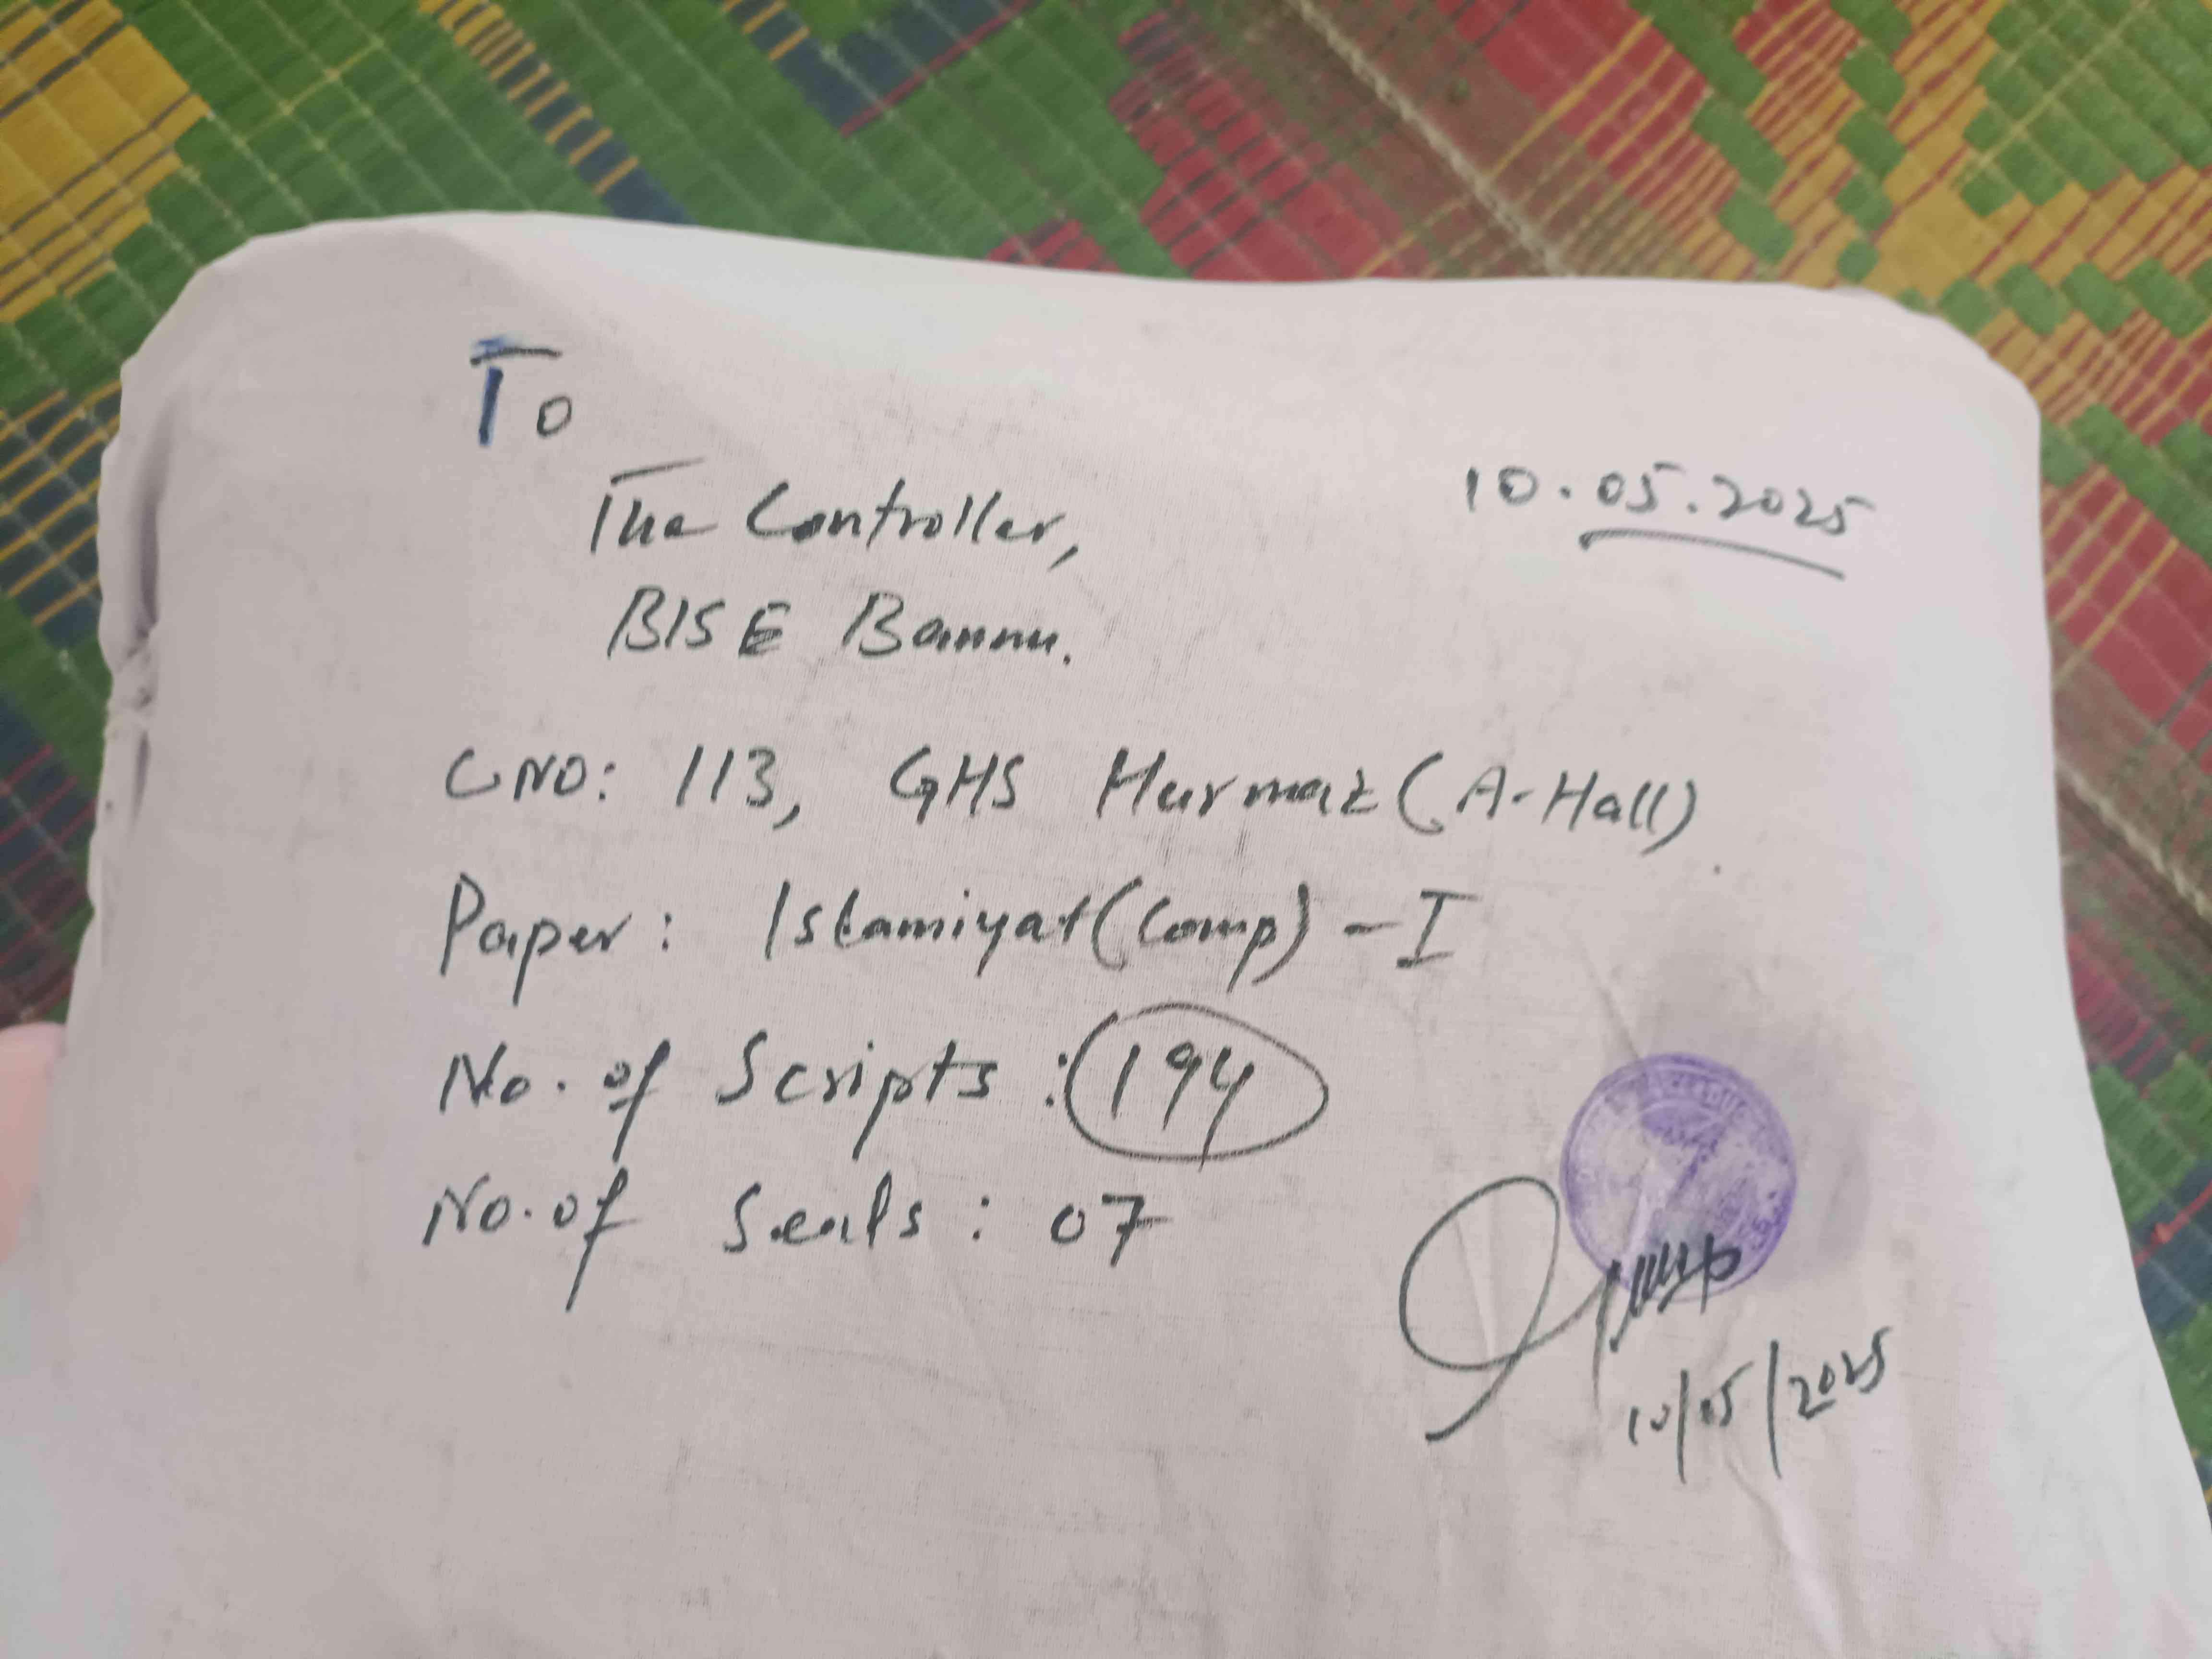 To
The Controller,
10.05.2025
BISE Bannu.
CNO: 113, GHS Hurmaz (A-Hall)
Paper: Islamiyat (Comp) - I
No. of Scripts : 194
No. of Seals : 07
10/05/2025